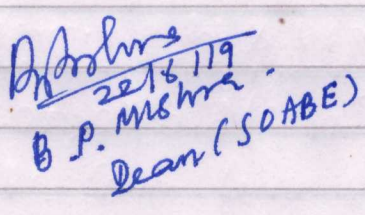 22/8/19
B.P. Mishra.
Dean (SOABE)